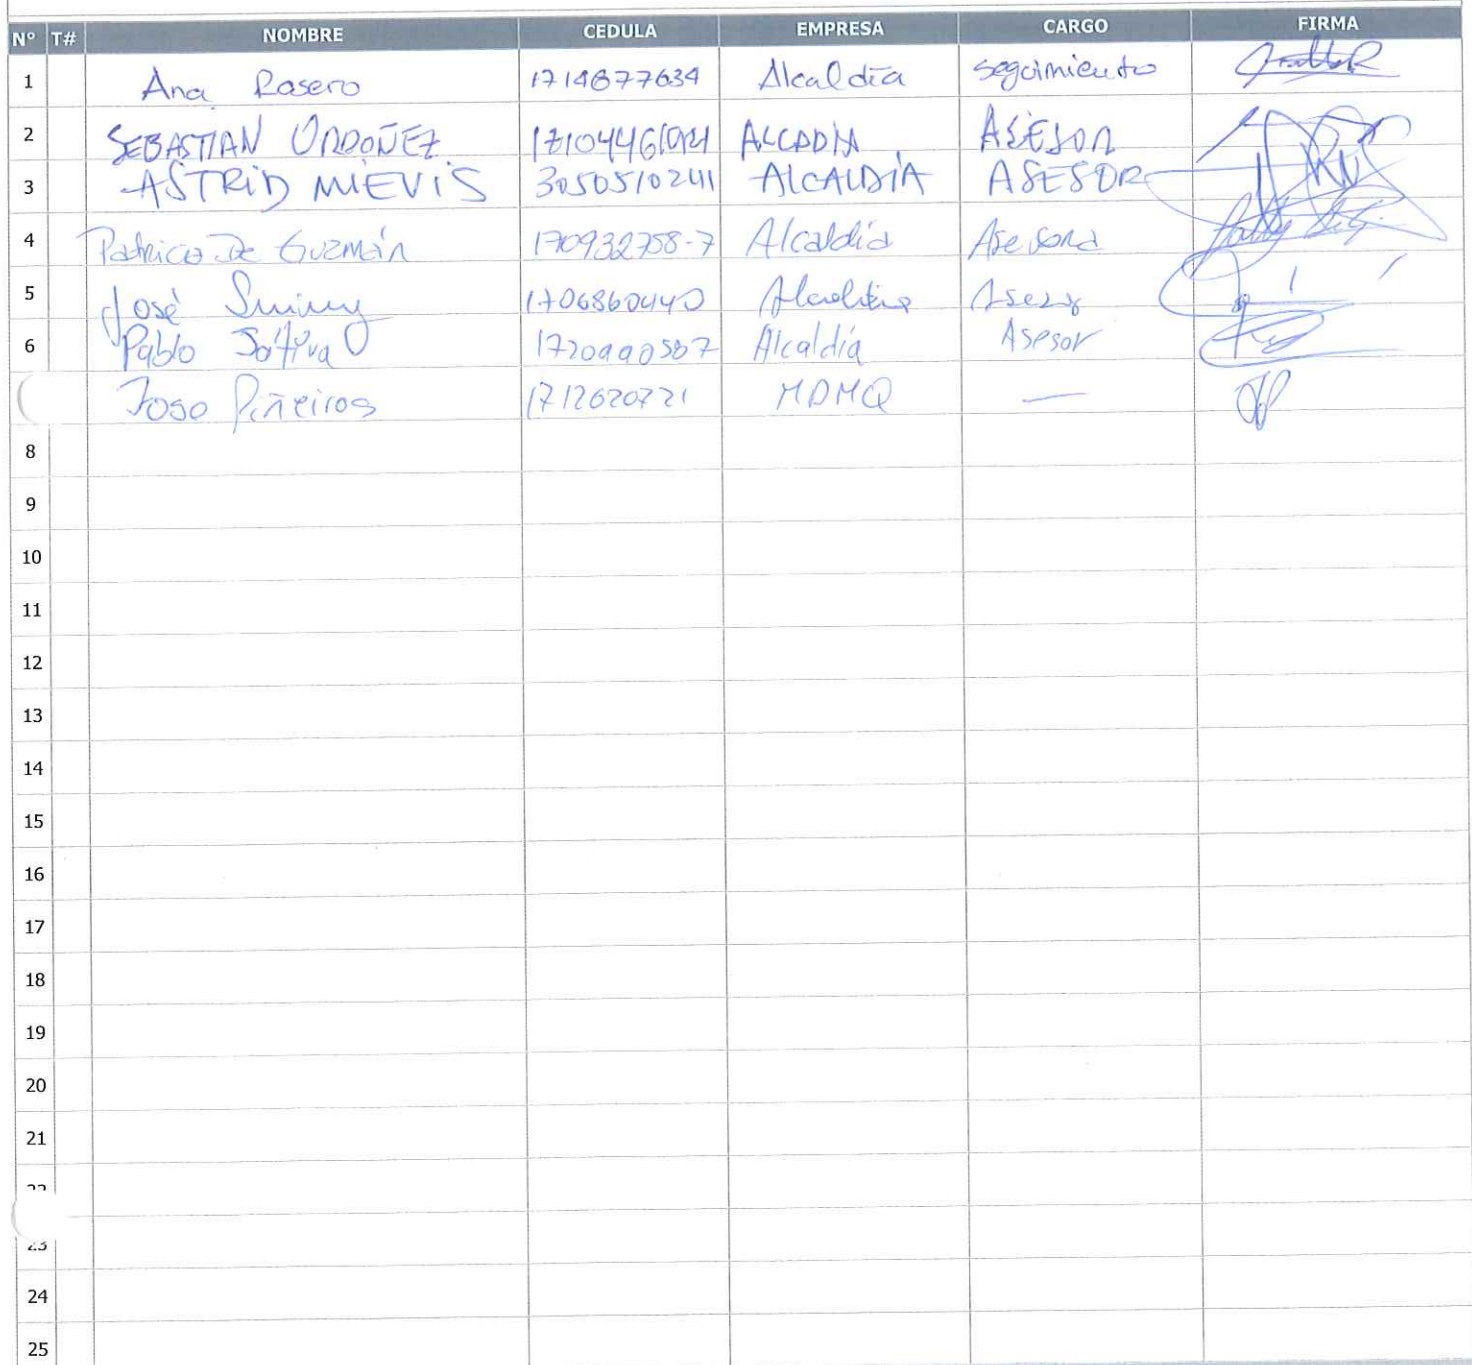 N° T# NOMBRE CEDULA EMPRESA CARGO FIRMA
1 Ana Rosero 1714877634 Alcaldía seguimiento
2 SEBASTIAN ORDOÑEZ ALCADIA ASESOR
3 ASTRID MIEVIS 3050510241 ALCALDIA ASESOR
4 Patricia De Guzmán 170932758-7 Alcaldía Asesora
5 José 1706860440 Asesor
6 Pablo Játiva 1720990587 Alcaldía Asesor
Jose Piñeiros 1712620721 MDMQ —
8
9
10
11
12
13
14
15
16
17
18
19
20
21
22
23
24
25